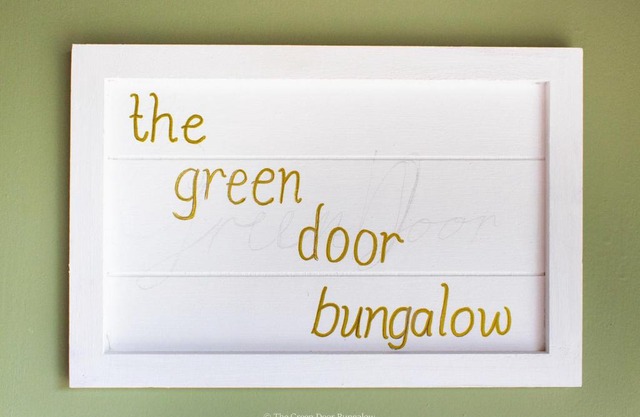 the
green
door
bungalow
green Door
© The Green Door Bungalow